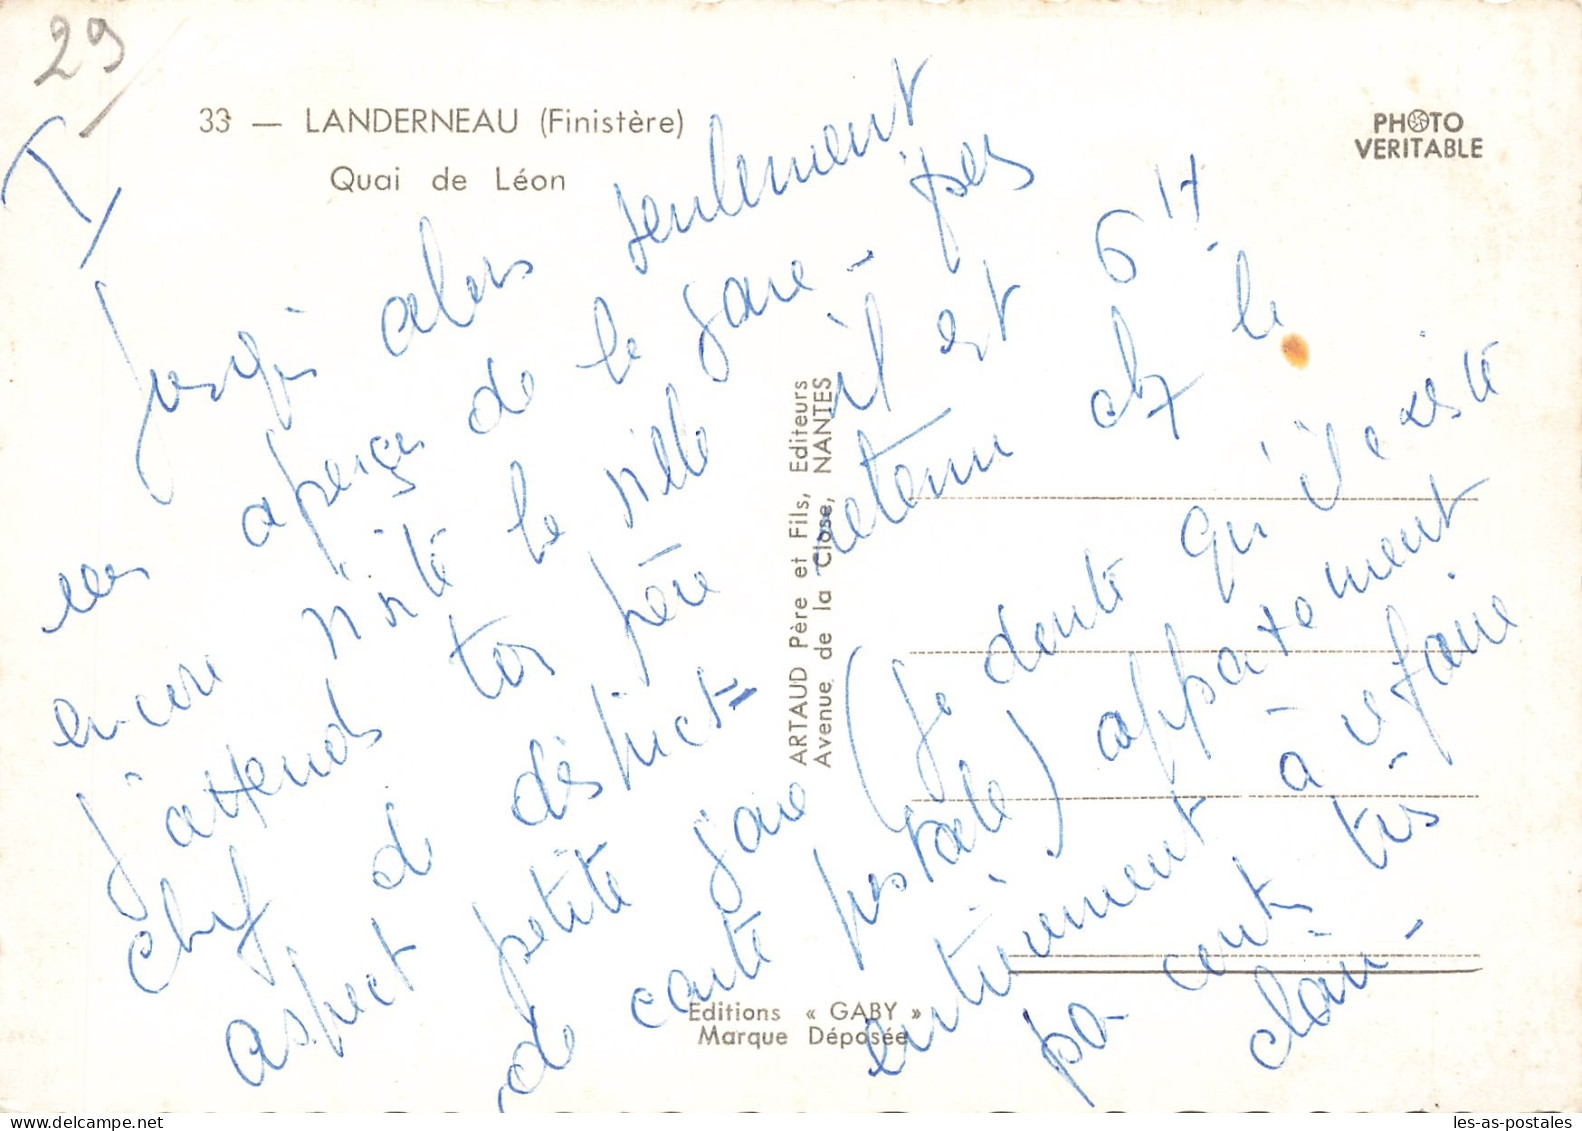 29
I
33 — LANDERNEAU (Finistère)
Quai de Léon
PHOTO
VERITABLE
Jusqu'alors seulement
aperçu de la gare - pas
encore visité la ville il est 6 H
J'attends ton père retenu chez le
chef de district =
aspect petite gare (je doute qu'il existe
de carte postale) appartement
entièrement à refaire
par cent très
clair -
ARTAUD Père et Fils, Editeurs
Avenue de la Close, NANTES
Editions « GABY »
Marque Déposée
les-as-postales
les-as-postales.net